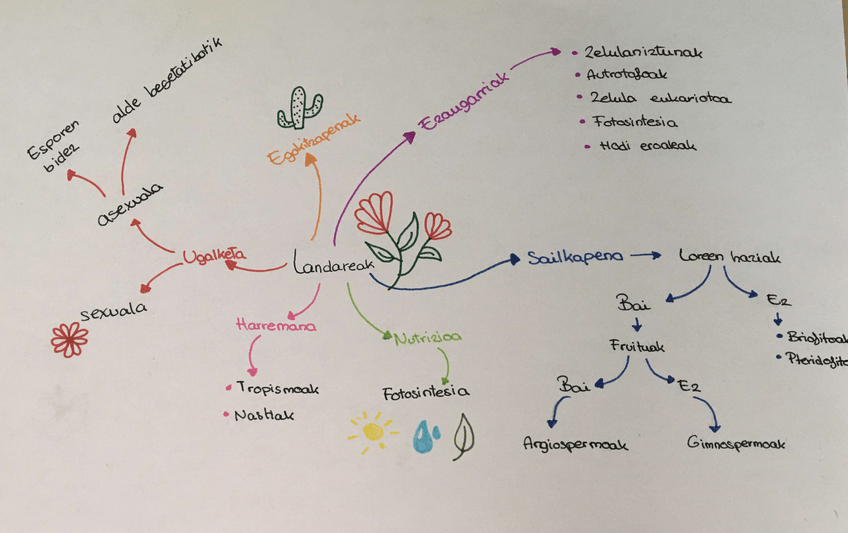 Landareak
Ezaugarriak
• Zelulaniztunak
• Autrotofoak
• Zelula eukariotoa
• Fotosintesia
• Hodi eroaleak
Egokitzapenak
Ugalketa
asexuala
Esporen
bidez
alde begetatibotik
sexuala
Harremana
• Tropismoak
• Nastiak
Nutrizioa
Fotosintesia
Sailkapena
Loreen haziak
Bai
Ez
Fruituak
• Briofitoak
• Pteridofito
Bai
Ez
Angiospermoak
Gimnospermoak